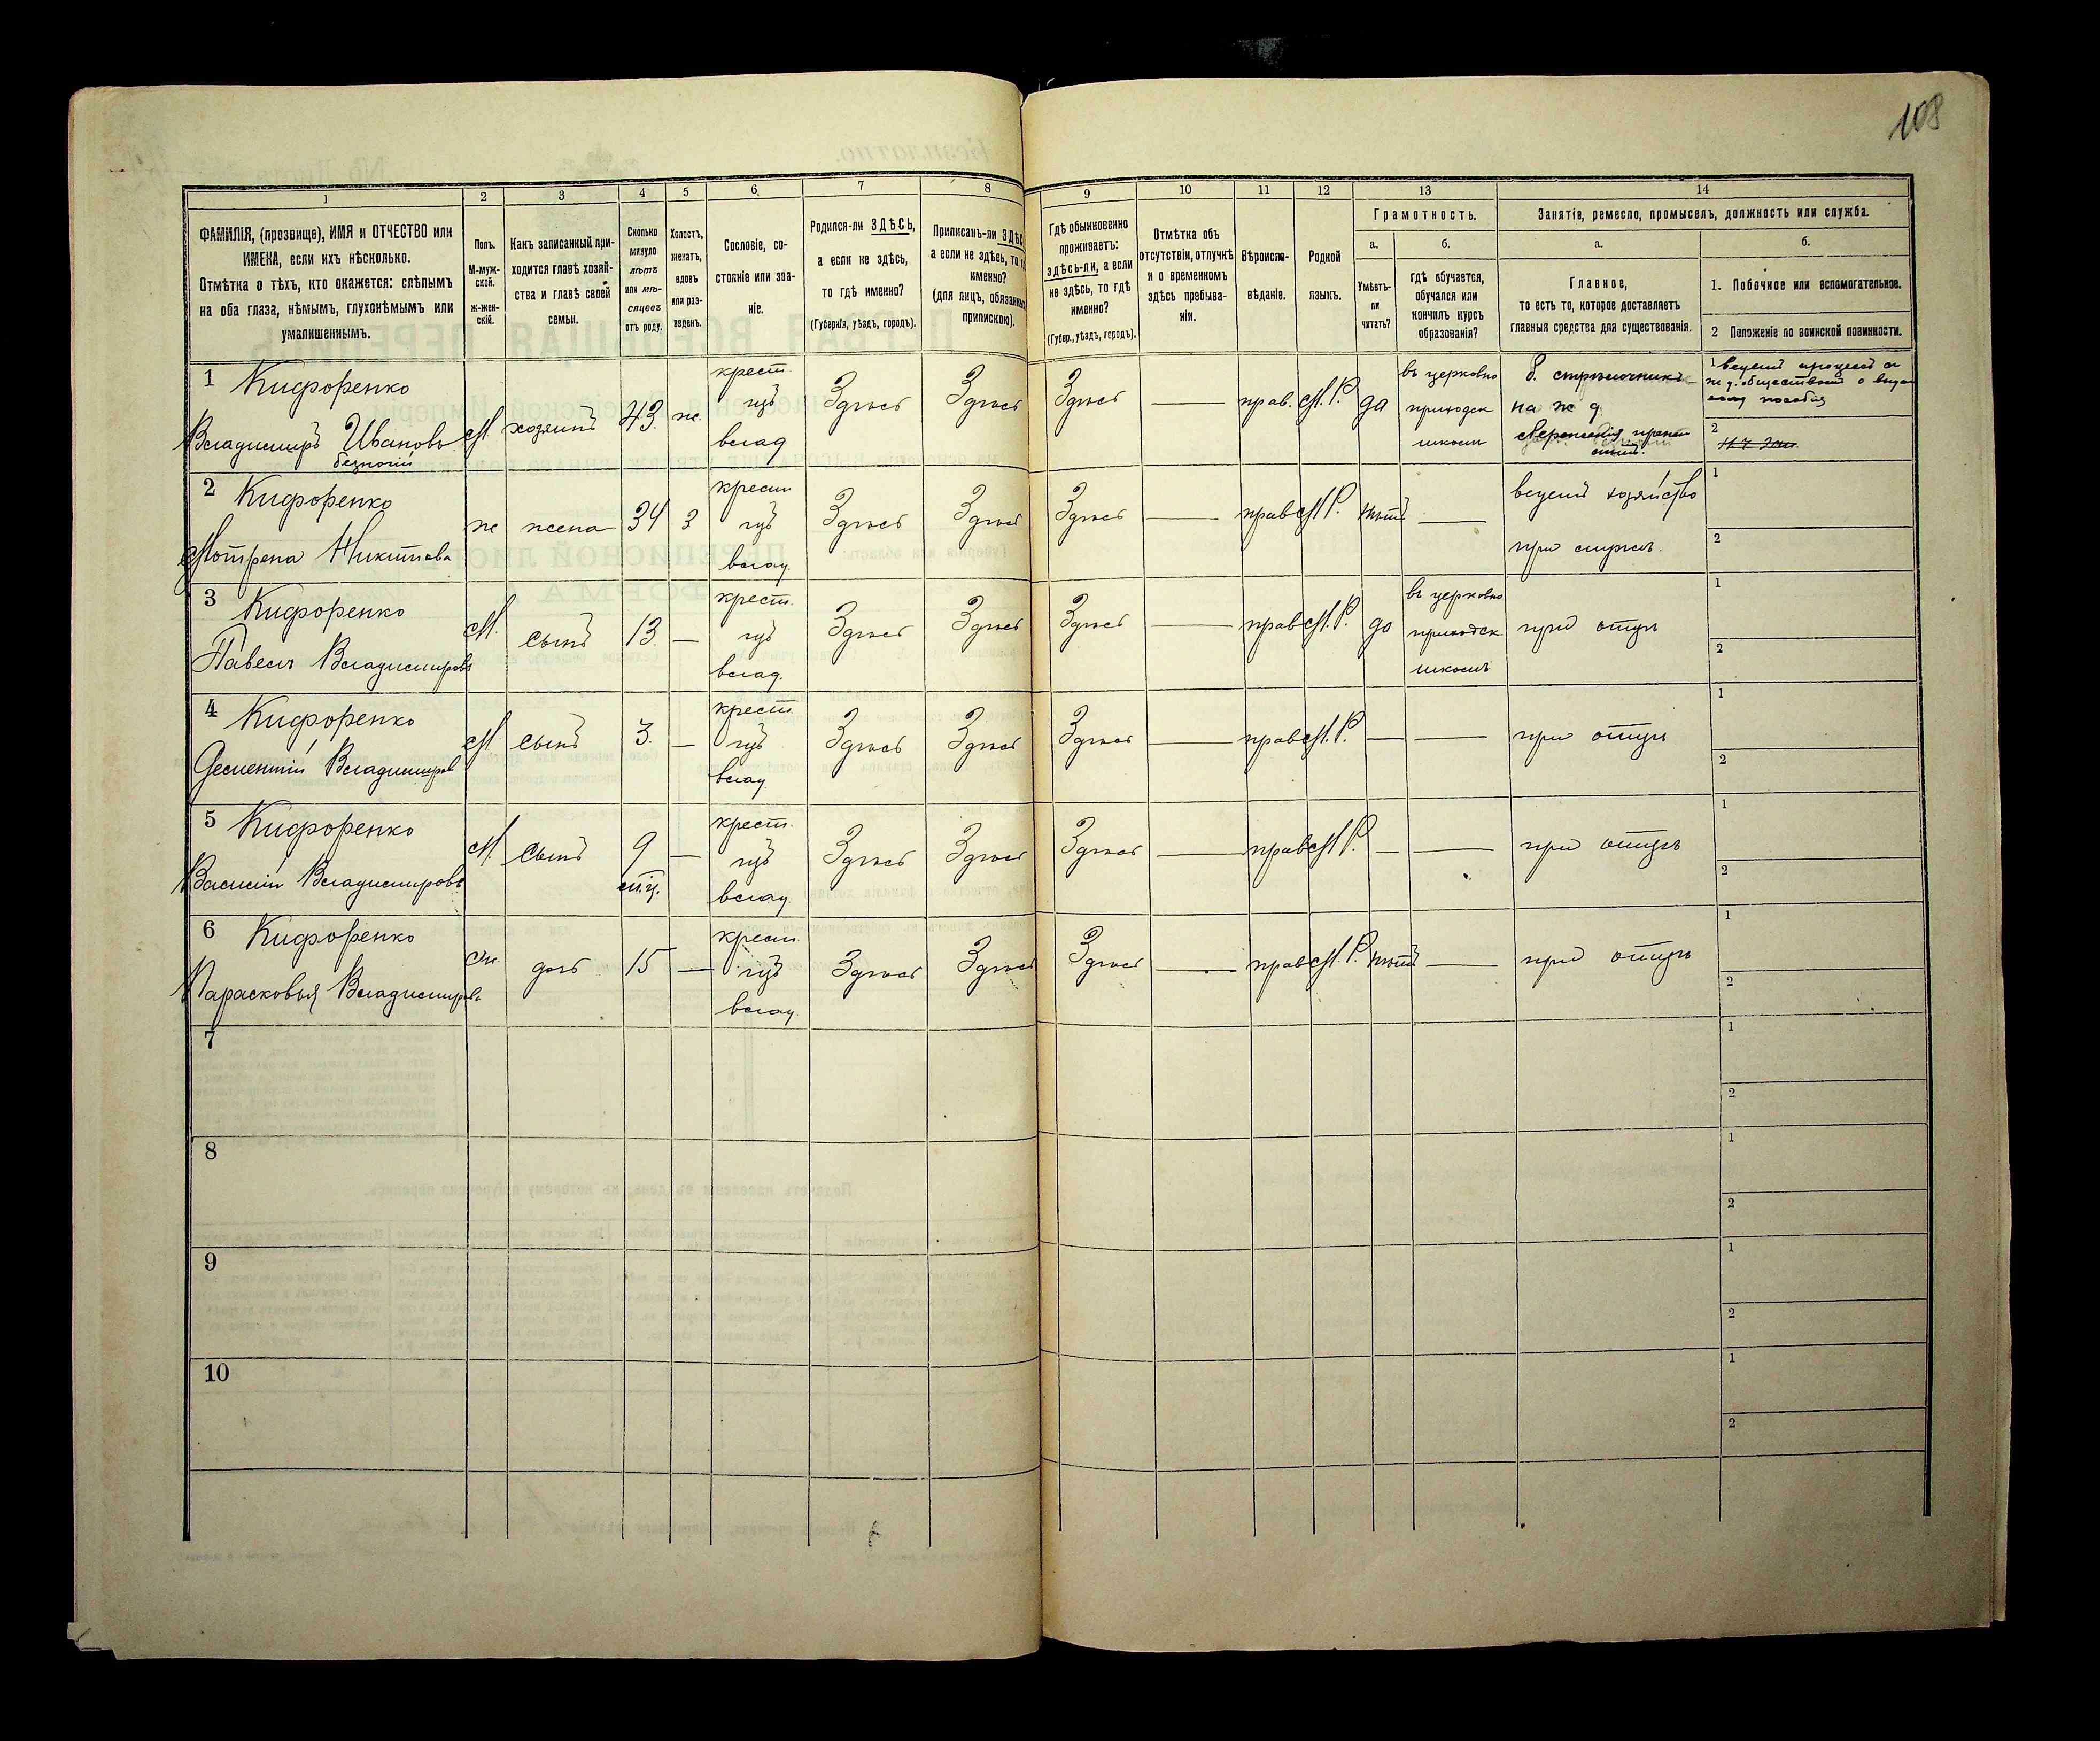 108
1 2 3 4 5 6 7 8 9 10 11 12 13 14
ФАМИЛІЯ, (прозвище), ИМЯ и ОТЧЕСТВО или
ИМЕНА, если ихъ нѣсколько.
Отмѣтка о тѣхъ, кто окажется: слѣпымъ
на оба глаза, нѣмымъ, глухонѣмымъ или
умалишеннымъ.
Полъ.
М-муж-
ской.
Ж-жен-
скій.
Какъ записанный при-
ходится главѣ хозяй-
ства и главѣ своей
семьи.
Сколько
минуло
лѣтъ
или мѣ-
сяцевъ
отъ роду.
Холостъ,
женатъ,
вдовъ
или раз-
веденъ.
Сословіе, со-
стояніе или зва-
ніе.
Родился-ли ЗДѢСЬ,
а если не здѣсь,
то гдѣ именно?
(Губернія, уѣздъ, городъ).
Приписанъ-ли ЗДѢС
а если не здѣсь, то
именно?
(для лицъ, обязанных
припискою).
Гдѣ обыкновенно
проживаетъ:
здѣсь-ли, а если
не здѣсь, то гдѣ
именно?
(Губер., уѣздъ, городъ).
Отмѣтка объ
отсутствіи, отлучкѣ
и о временномъ
здѣсь пребыва-
ніи.
Вѣроиспо-
вѣданіе.
Родной
языкъ.
Грамотность.
а.
Умѣетъ-
ли
читать?
б.
гдѣ обучается,
обучался или
кончилъ курсъ
образованія?
Занятіе, ремесло, промыселъ, должность или служба.
а.
Главное,
то есть то, которое доставляетъ
главныя средства для существованія.
б.
1. Побочное или вспомогательное.
2 Положеніе по воинской повинности.
1 Кифоренко
Владимиръ Ивановъ
безногій
М. хозяинъ 43 ж. крест. влад Здѣсь Здѣсь Здѣсь — прав. М.Р. да
въ церковно
приходск
школѣ
б. стрѣлочникъ
на ж д
1 ведетъ процессъ съ
ж д. обществомъ о выда
пособія
2
2 Кифоренко
Мотрена Никитова
ж жена 34 З крест влад. Здѣсь Здѣсь Здѣсь — прав М.Р. нѣтъ —
ведетъ хозяйство
при мужѣ.
1
2
3 Кифоренко
Павелъ Владимировъ
М. сынъ 13 — крест. влад. Здѣсь Здѣсь Здѣсь — прав М.Р. да
въ церковно
приходск
школѣ
при отцѣ
1
2
4 Кифоренко
Владимиров
М сынъ 3. — крест. влад. Здѣсь Здѣсь Здѣсь — прав М.Р. — — при отцѣ
1
2
5 Кифоренко
Василій Владимировъ
М. сынъ 9 — крест. влад Здѣсь Здѣсь Здѣсь — прав М.Р. — — при отцѣ
1
2
6 Кифоренко
Парасковья Владимирова
ж. дочь 15 — крест. влад. Здѣсь Здѣсь Здѣсь — прав М.Р. нѣтъ — при отцѣ
1
2
7
1
2
8
1
2
9
1
2
10
1
2